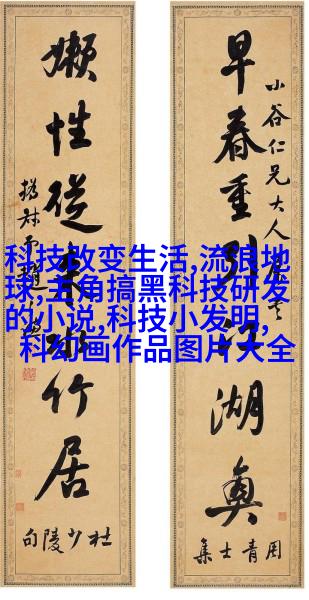 早春重引江湖興
小谷仁兄大人
周青士集
嬾性從來水竹居
杜少陵句
撝叔弟趙
科技改变生活,流浪地
球,主角搞黑科技研发
的小说,科技小发明,
科幻画作品图片大全